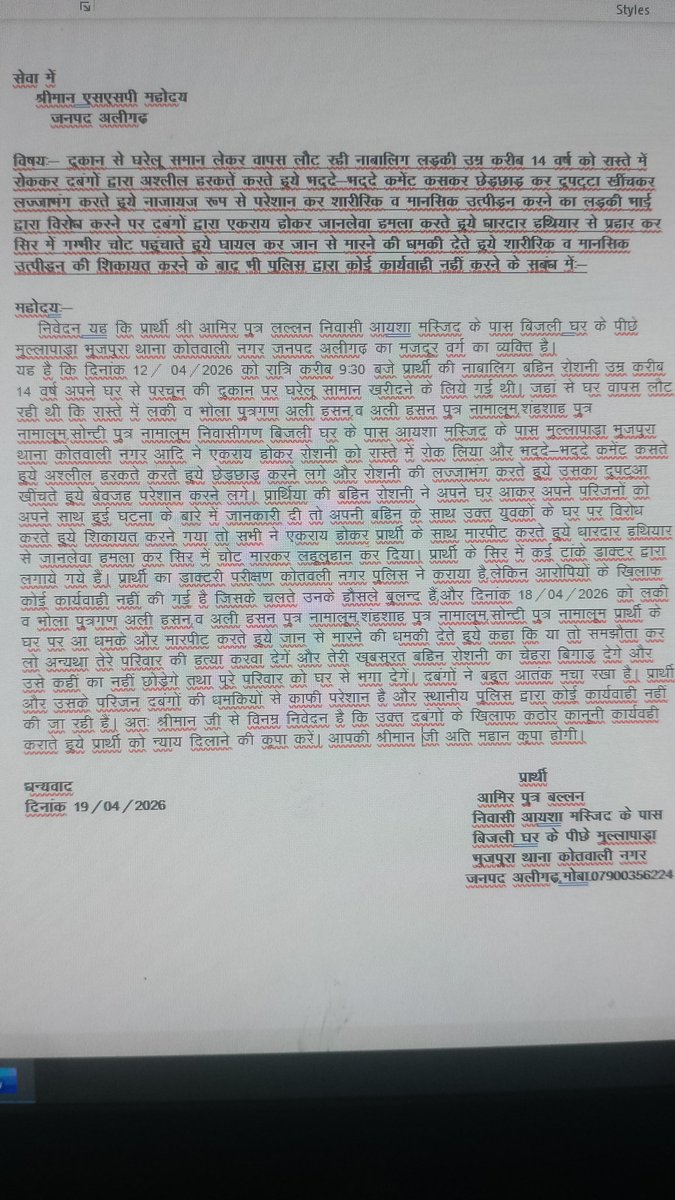 Styles
सेवा में
श्रीमान एसएसपी महोदय
जनपद अलीगढ़
विषयः– दुकान से घरेलू समान लेकर वापस लौट रही नाबालिग लड़की उम्र करीब 14 वर्ष को रास्ते में
रोककर दबंगों द्वारा अश्लील हरकतें करते हुये भद्दे–भद्दे कमेंट कसकर छेड़छाड़ कर दुपट्टा खींचकर
लज्जाभंग करते हुये नाजायज रूप से परेशान कर शारीरिक व मानसिक उत्पीड़न करने का लड़की भाई
द्वारा विरोध करने पर दबंगों द्वारा एकराय होकर जानलेवा हमला करते हुये धारदार हथियार से प्रहार कर
सिर में गम्भीर चोट पहुंचाते हुये घायल कर जान से मारने की धमकी देते हुये शारीरिक व मानसिक
उत्पीड़न की शिकायत करने के बाद भी पुलिस द्वारा कोई कार्यवाही नहीं करने के सबंन में:–
महोदयः–
निवेदन यह कि प्रार्थी श्री आमिर पुत्र लल्लन निवासी आयशा मस्जिद के पास बिजली घर के पीछे
मुल्लापाड़ा भुजपुरा थाना कोतवाली नगर जनपद अलीगढ़ का मजदूर वर्ग का व्यक्ति है।
यह है कि दिनांक 12/ 04/2026 को रात्रि करीब 9:30 बजे प्रार्थी की नाबालिग बहिन रोशनी उम्र करीब
14 वर्ष अपने घर से परचून की दुकान पर घरेलू सामान खरीदने के लिये गई थी। जहां से घर वापस लौट
रही थी कि रास्ते में लकी व भोला पुत्रगण अली हसन,व अली हसन पुत्र नामालूम,शहंशाह पुत्र
नामालूम,सोन्टी पुत्र नामालूम निवासीगण बिजली घर के पास आयशा मस्जिद के पास मुल्लापाड़ा भुजपुरा
थाना कोतवाली नगर आदि ने एकराय होकर रोशनी को रास्ते में रोक लिया और भद्दे–भद्दे कमेंट कसते
हुये अश्लील हरकते करते हुये छेड़छाड़ करने लगे और रोशनी की लज्जाभंग करते हुये उसका दुपटआ
खींचते हुये बेवजह परेशान करने लगे। प्रार्थिया की बहिन रोशनी ने अपने घर आकर अपने परिजनों को
अपने साथ हुई घटना के बारे में जानकारी दी तो अपनी बहिन के साथ उक्त युवकों के घर पर विरोध
करते हुये शिकायत करने गया तो सभी ने एकराय होकर प्रार्थी के साथ मारपीट करते हुये धारदार हथियार
से जानलेवा हमला कर सिर में चोट मारकर लहूलुहान कर दिया। प्रार्थी के सिर में कई टांके डाक्टर द्वारा
लगाये गये हैं। प्रार्थी का डाक्टरी परीक्षण कोतवली नगर पुलिस ने कराया है,लेकिन आरोपियों के खिलाफ
कोई कार्यवाही नहीं की गई है जिसके चलते उनके हौसले बुलन्द हैं,और दिनांक 18/04/2026 को लकी
व भोला पुत्रगण अली हसन,व अली हसन पुत्र नामालूम,शहंशाह पुत्र नामालूम,सोन्टी पुत्र नामालूम प्रार्थी के
घर पर आ धमके और मारपीट करते हुये जान से मारने की धमकी देते हुये कहा कि या तो समझौता कर
लो अन्यथा तेरे परिवार की हत्या करवा देंगे और तेरी खूबसूरत बहिन रोशनी का चेहरा बिगाड़ देंगे और
उसे कहीं का नहीं छोड़ेंगे तथा पूरे परिवार को घर से भगा देंगे। दबंगों ने बहुत आतंक मचा रखा है। प्रार्थी
और उसके परिजन दबंगों की धमकियों से काफी परेशान है और स्थानीय पुलिस द्वारा कोई कार्यवाही नहीं
की जा रही है। अतः श्रीमान जी से विनम्र निवेदन है कि उक्त दबंगों के खिलाफ कठोर कानूनी कार्यवही
कराते हुये प्रार्थी को न्याय दिलाने की कृपा करें। आपकी श्रीमान जी अति महान कृपा होगी।
धन्यवाद
दिनांक 19/04/2026
प्रार्थी
आमिर पुत्र बल्लन
निवासी आयशा मस्जिद के पास
बिजली घर के पीछे मुल्लापाड़ा
भुजपुरा थाना कोतवाली नगर
जनपद अलीगढ़,मोबा.07900356224